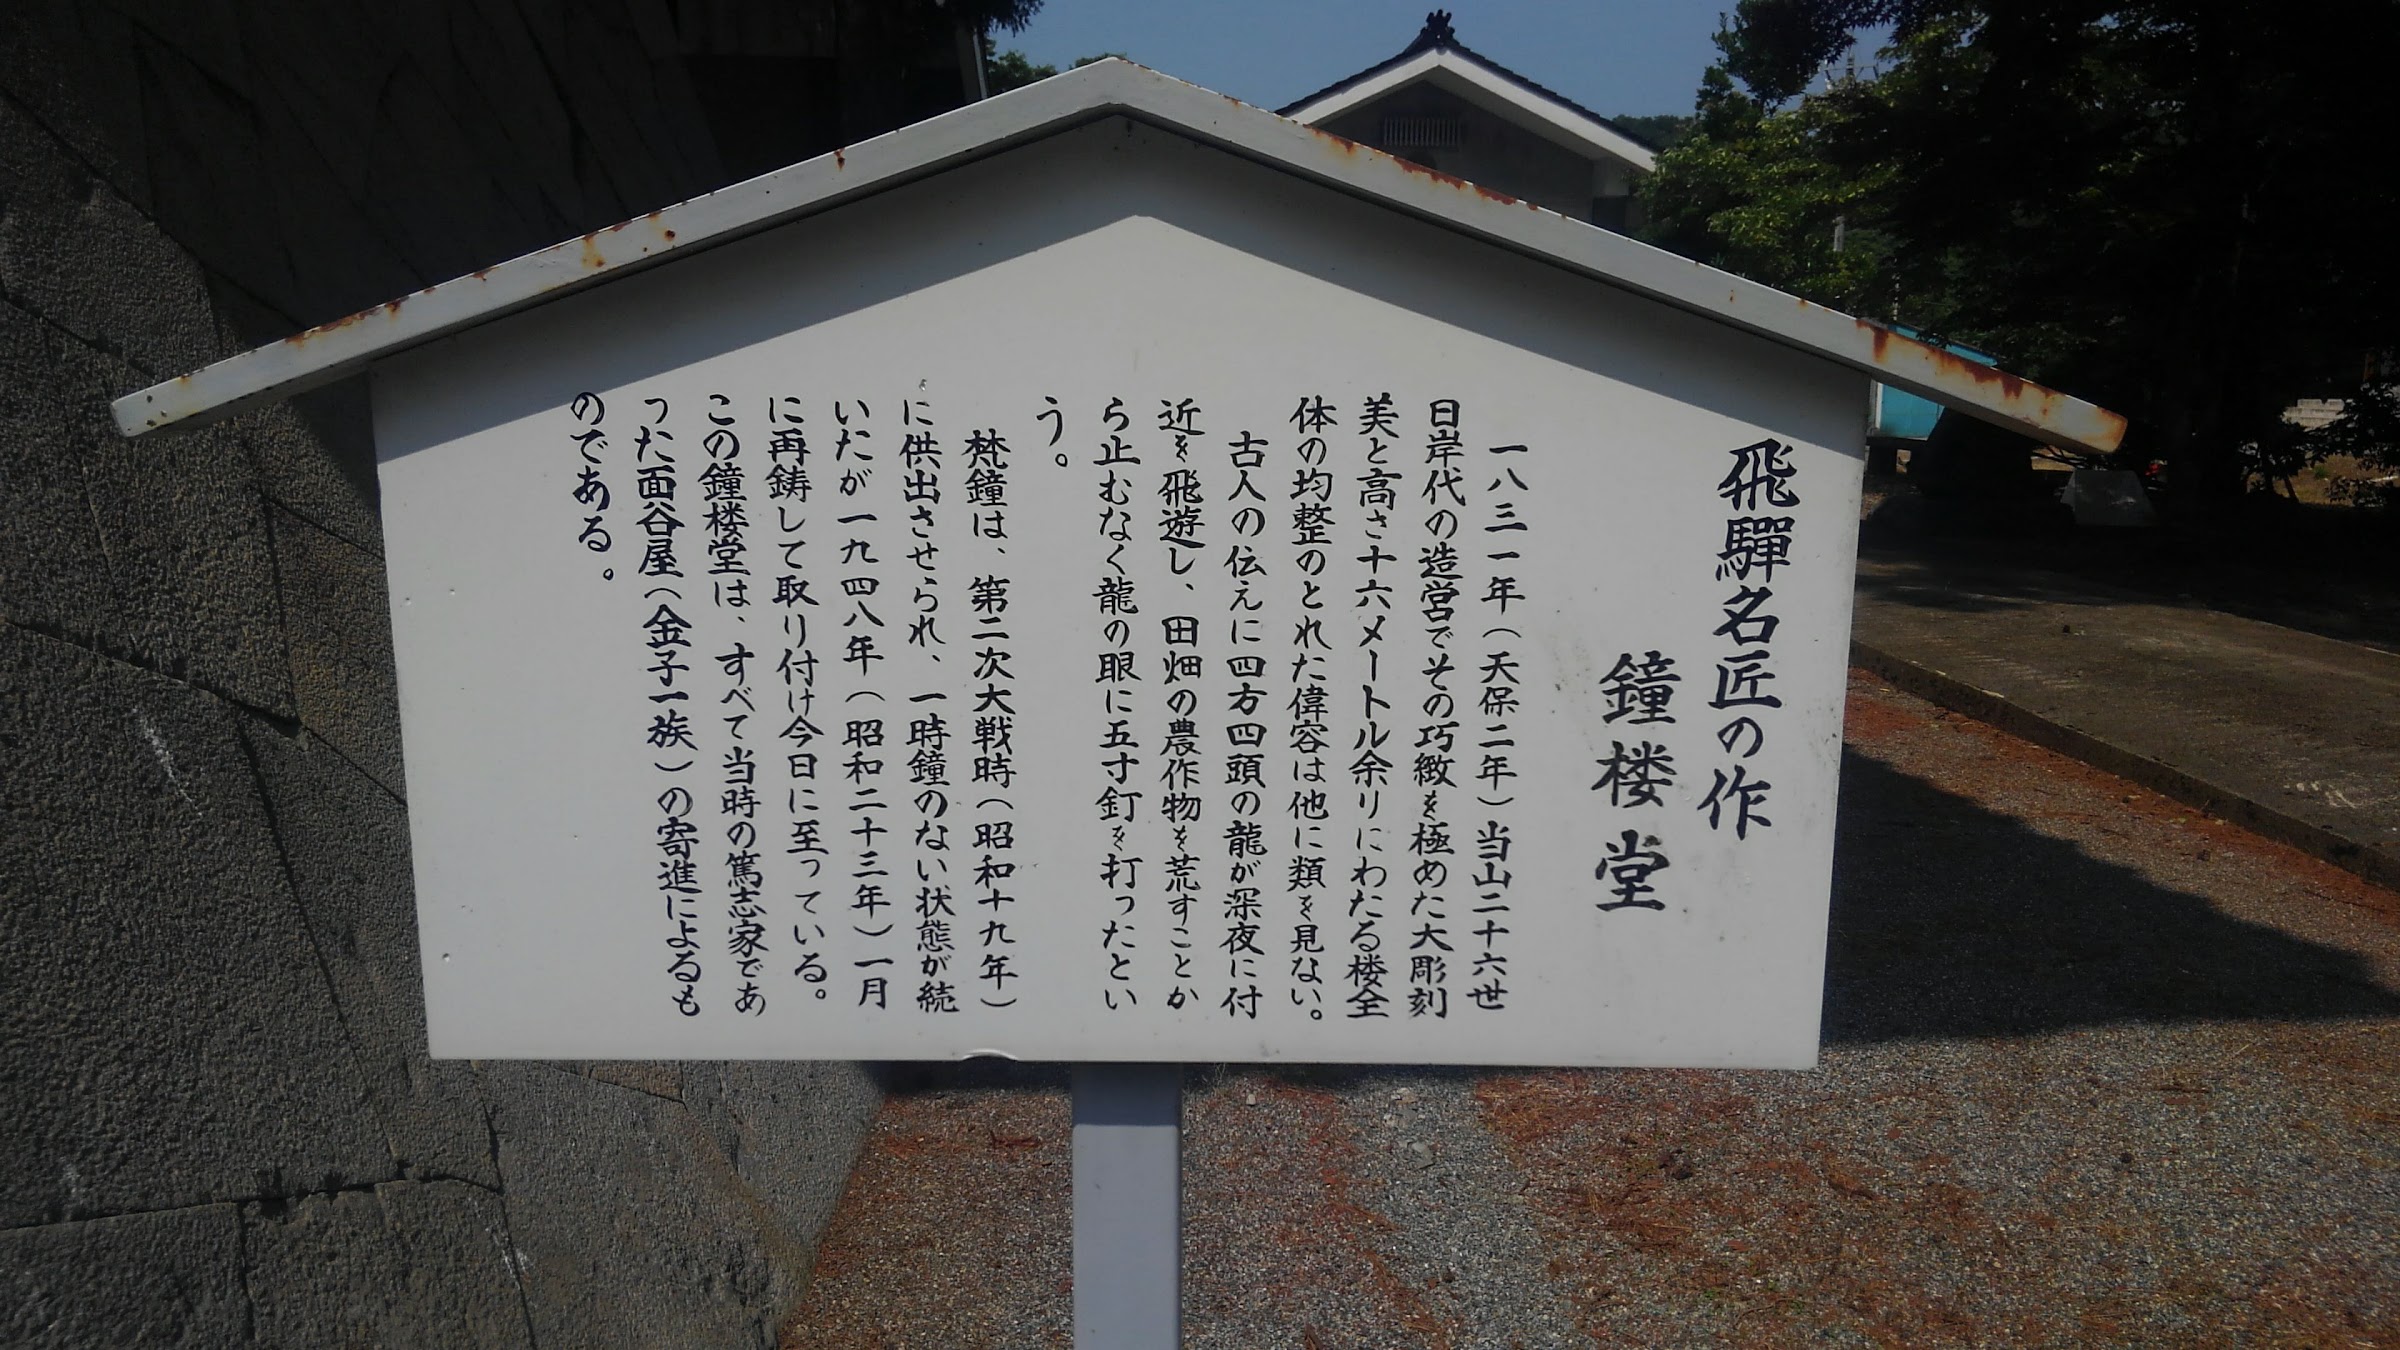 飛驒名匠の作
鐘楼堂
一八三一年（天保二年）当山二十六世
日岸代の造営でその巧緻を極めた大彫刻
美と高さ十六メートル余りにわたる楼全
体の均整のとれた偉容は他に類を見ない。
古人の伝えに四方四頭の龍が深夜に付
近を飛遊し、田畑の農作物を荒すことか
ら止むなく龍の眼に五寸釘を打ったとい
う。
梵鐘は、第二次大戦時（昭和十九年）
に供出させられ、一時鐘のない状態が続
いたが一九四八年（昭和二十三年）一月
に再鋳して取り付け今日に至っている。
この鐘楼堂は、すべて当時の篤志家であ
った面谷屋（金子一族）の寄進によるも
のである。